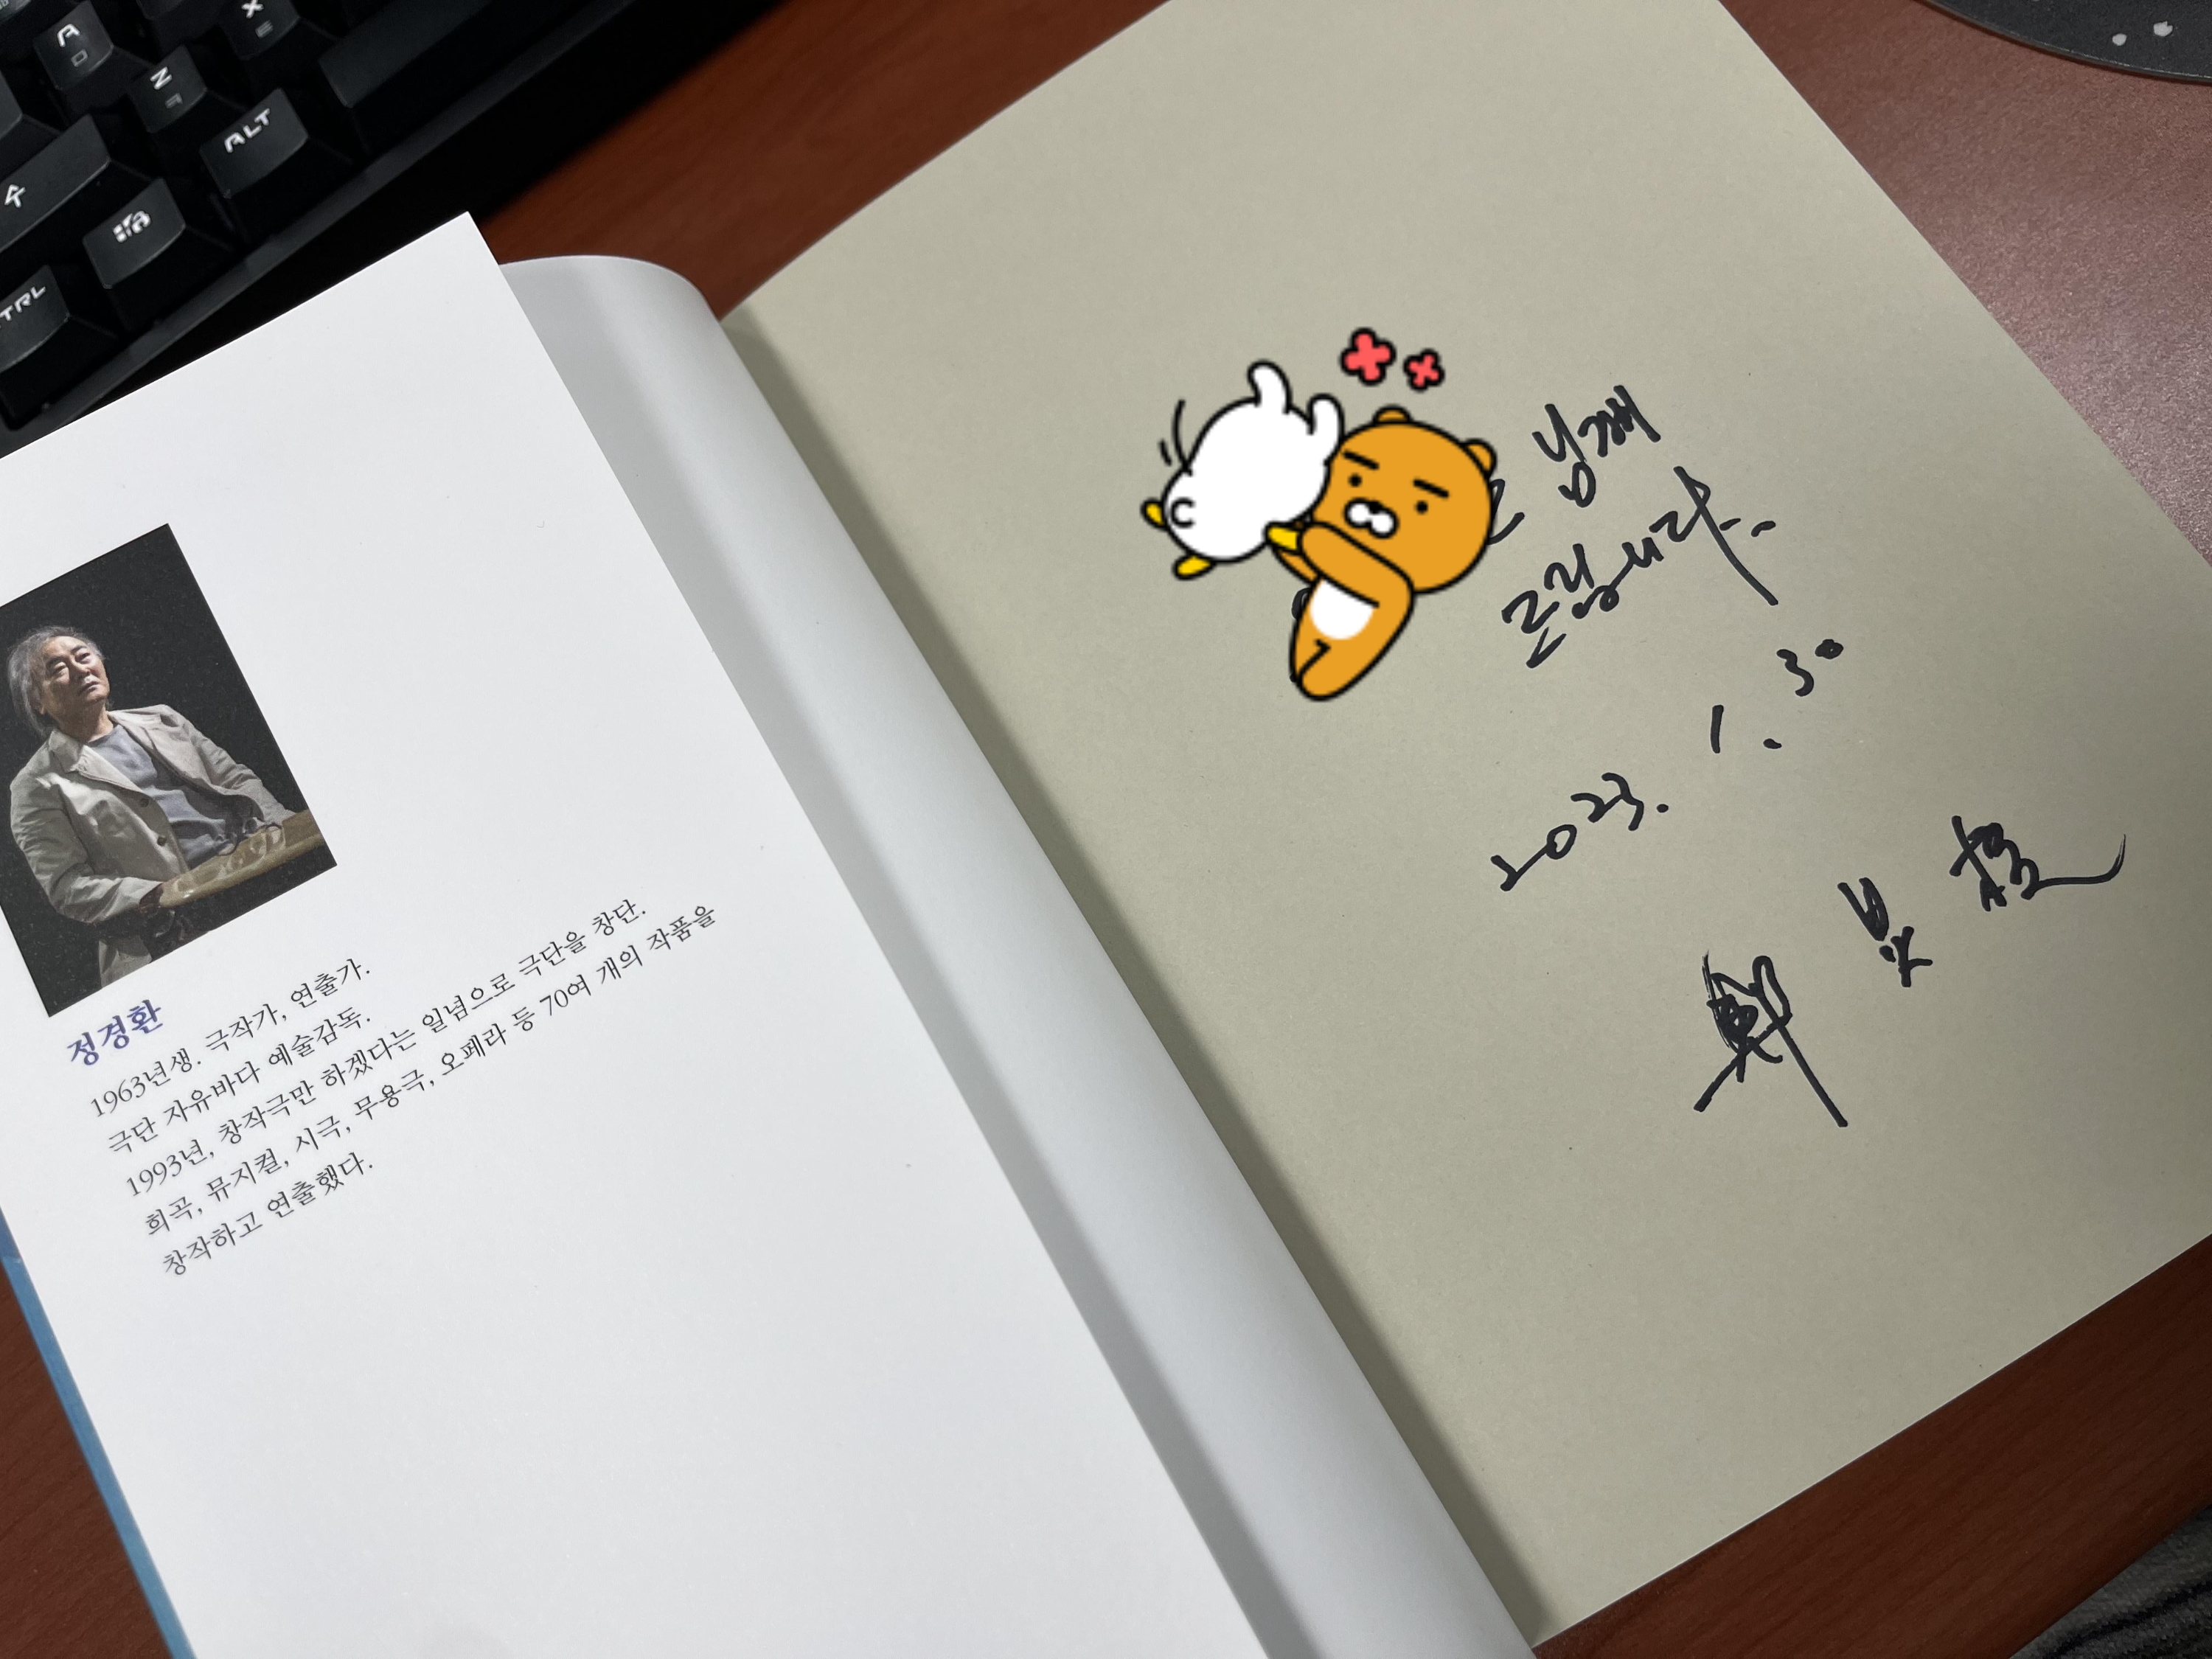 A
ㅁ
Z
ㅋ
X
ㅌ
ALT
TRL
정경환
1963년생. 극작가, 연출가.
극단 자유바다 예술감독.
1993년, 창작극만 하겠다는 일념으로 극단을 창단.
희곡, 뮤지컬, 시극, 무용극, 오페라 등 70여 개의 작품을
창작하고 연출했다.
님께
드립니다.
2023. 1. 30
鄭